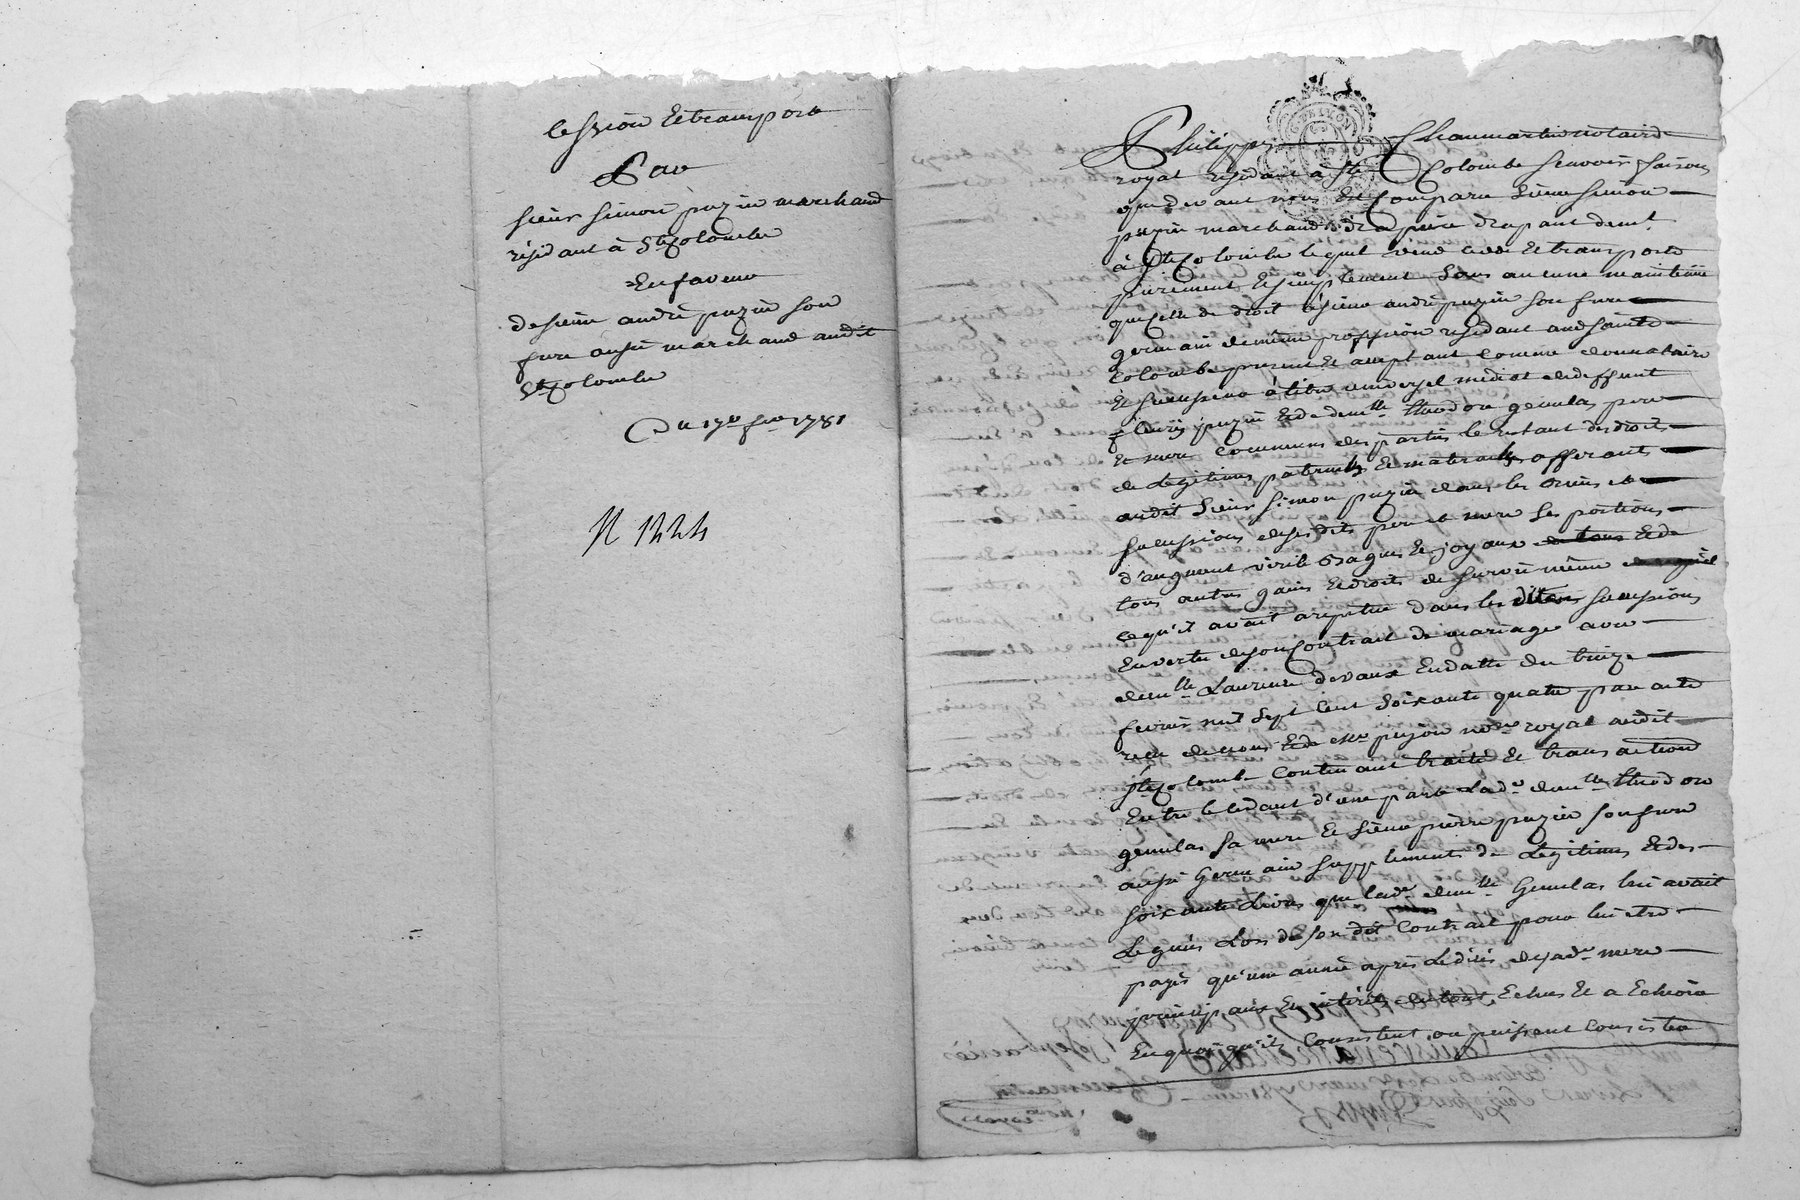 Cession et transport
Par
sieur simon puzin marchand
résidant à Ste Colombe
En faveur
de sieur andré puzin son
frere aussi marchand audit
Ste Colombe
Du 17e fer 1781
N 1224
Philippe Chaumartin notaire
royal résidant à Ste Colombe scavoir faisons
que devant nous Est Comparu sieur simon
puzin marchand drapant demt
à Ste Colombe lequel vend cede Et transporte
purement Et simplement sans aucune maintenüe
que celle de droit à sieur andré puzin son frere
germain de même profession résidant aud sainte
Colombe present Et acceptant comme donnataire
Et successeur à titre universel médiat de deffunt
fleury puzin Et de demlle theodore gemelas pere
Et mere communs des parties le restant des droits
de Légitimes paternels Et maternels afferants
audit sieur simon puzin dans les biens et
successions de ses dits pere et mere ses portions
d'augment virile Bagues Et joyaux Et de
tous autres gains Et droits de survie même
ce qu'il avait à repeter dans les dittes successions
En vertu de son Contrat de mariage avec
demlle Laurence devaux En datte du treize
fevrier mil sept Cent soixante quatre par acte
reçu de nous Et de me pujon nore royal audit
Ste Colombe Contenant traité Et transaction
Entre le cedant d'une part Lade demlle theodore
gemelas sa mere Et sieur pierre puzin son frere
aussi Germain supplements de Légitimes Et des
soixante Livres que lade demlle Gemelas lui avait
Legués Lors de son dit Contrat pour lui etre
payés qu'une année après Le décès de sade mere
principaux Et intérêts du tout Echus Et a Echeoir
En quoi qu'ils Consistent ou puissent Consister